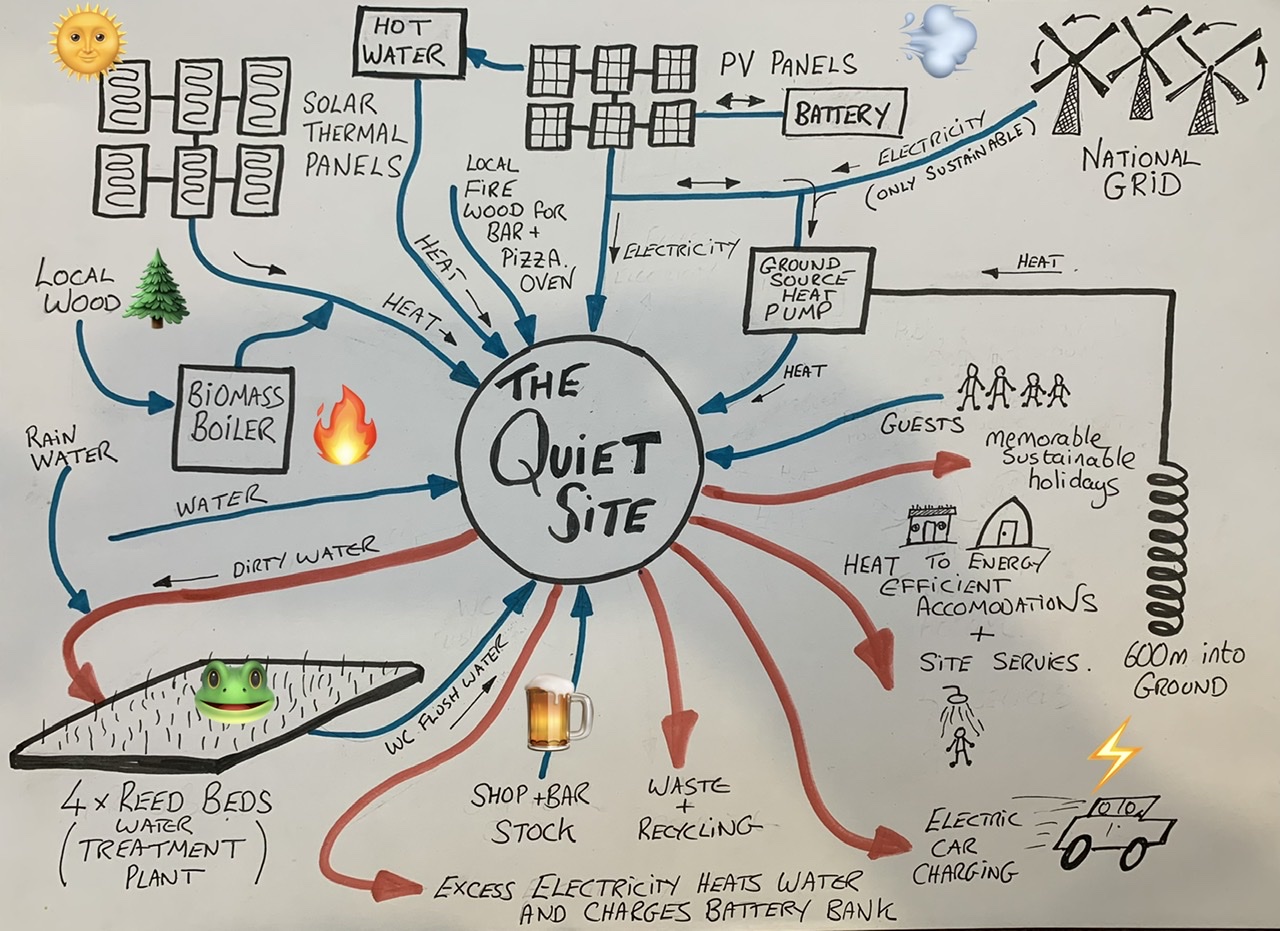 HOT
WATER
SOLAR
THERMAL
PANELS
PV PANELS
BATTERY
ELECTRICITY
(ONLY SUSTAINABLE)
NATIONAL
GRID
LOCAL
FIRE
WOOD FOR
BAR +
PIZZA.
OVEN
ELECTRICITY
GROUND
SOURCE
HEAT
PUMP
HEAT
HEAT
HEAT
HEAT
LOCAL
WOOD
BIOMASS
BOILER
RAIN
WATER
WATER
DIRTY WATER
THE
QUIET
SITE
GUESTS
memorable
Sustainable
holidays
HEAT TO ENERGY
EFFICIENT
ACCOMODATIONS
+
SITE SERVIES.
600m into
GROUND
WC FLUSH WATER
4 x REED BEDS
(WATER
TREATMENT
PLANT)
SHOP + BAR
STOCK
WASTE
+
RECYCLING
ELECTRIC
CAR
CHARGING
EXCESS ELECTRICITY HEATS WATER
AND CHARGES BATTERY BANK